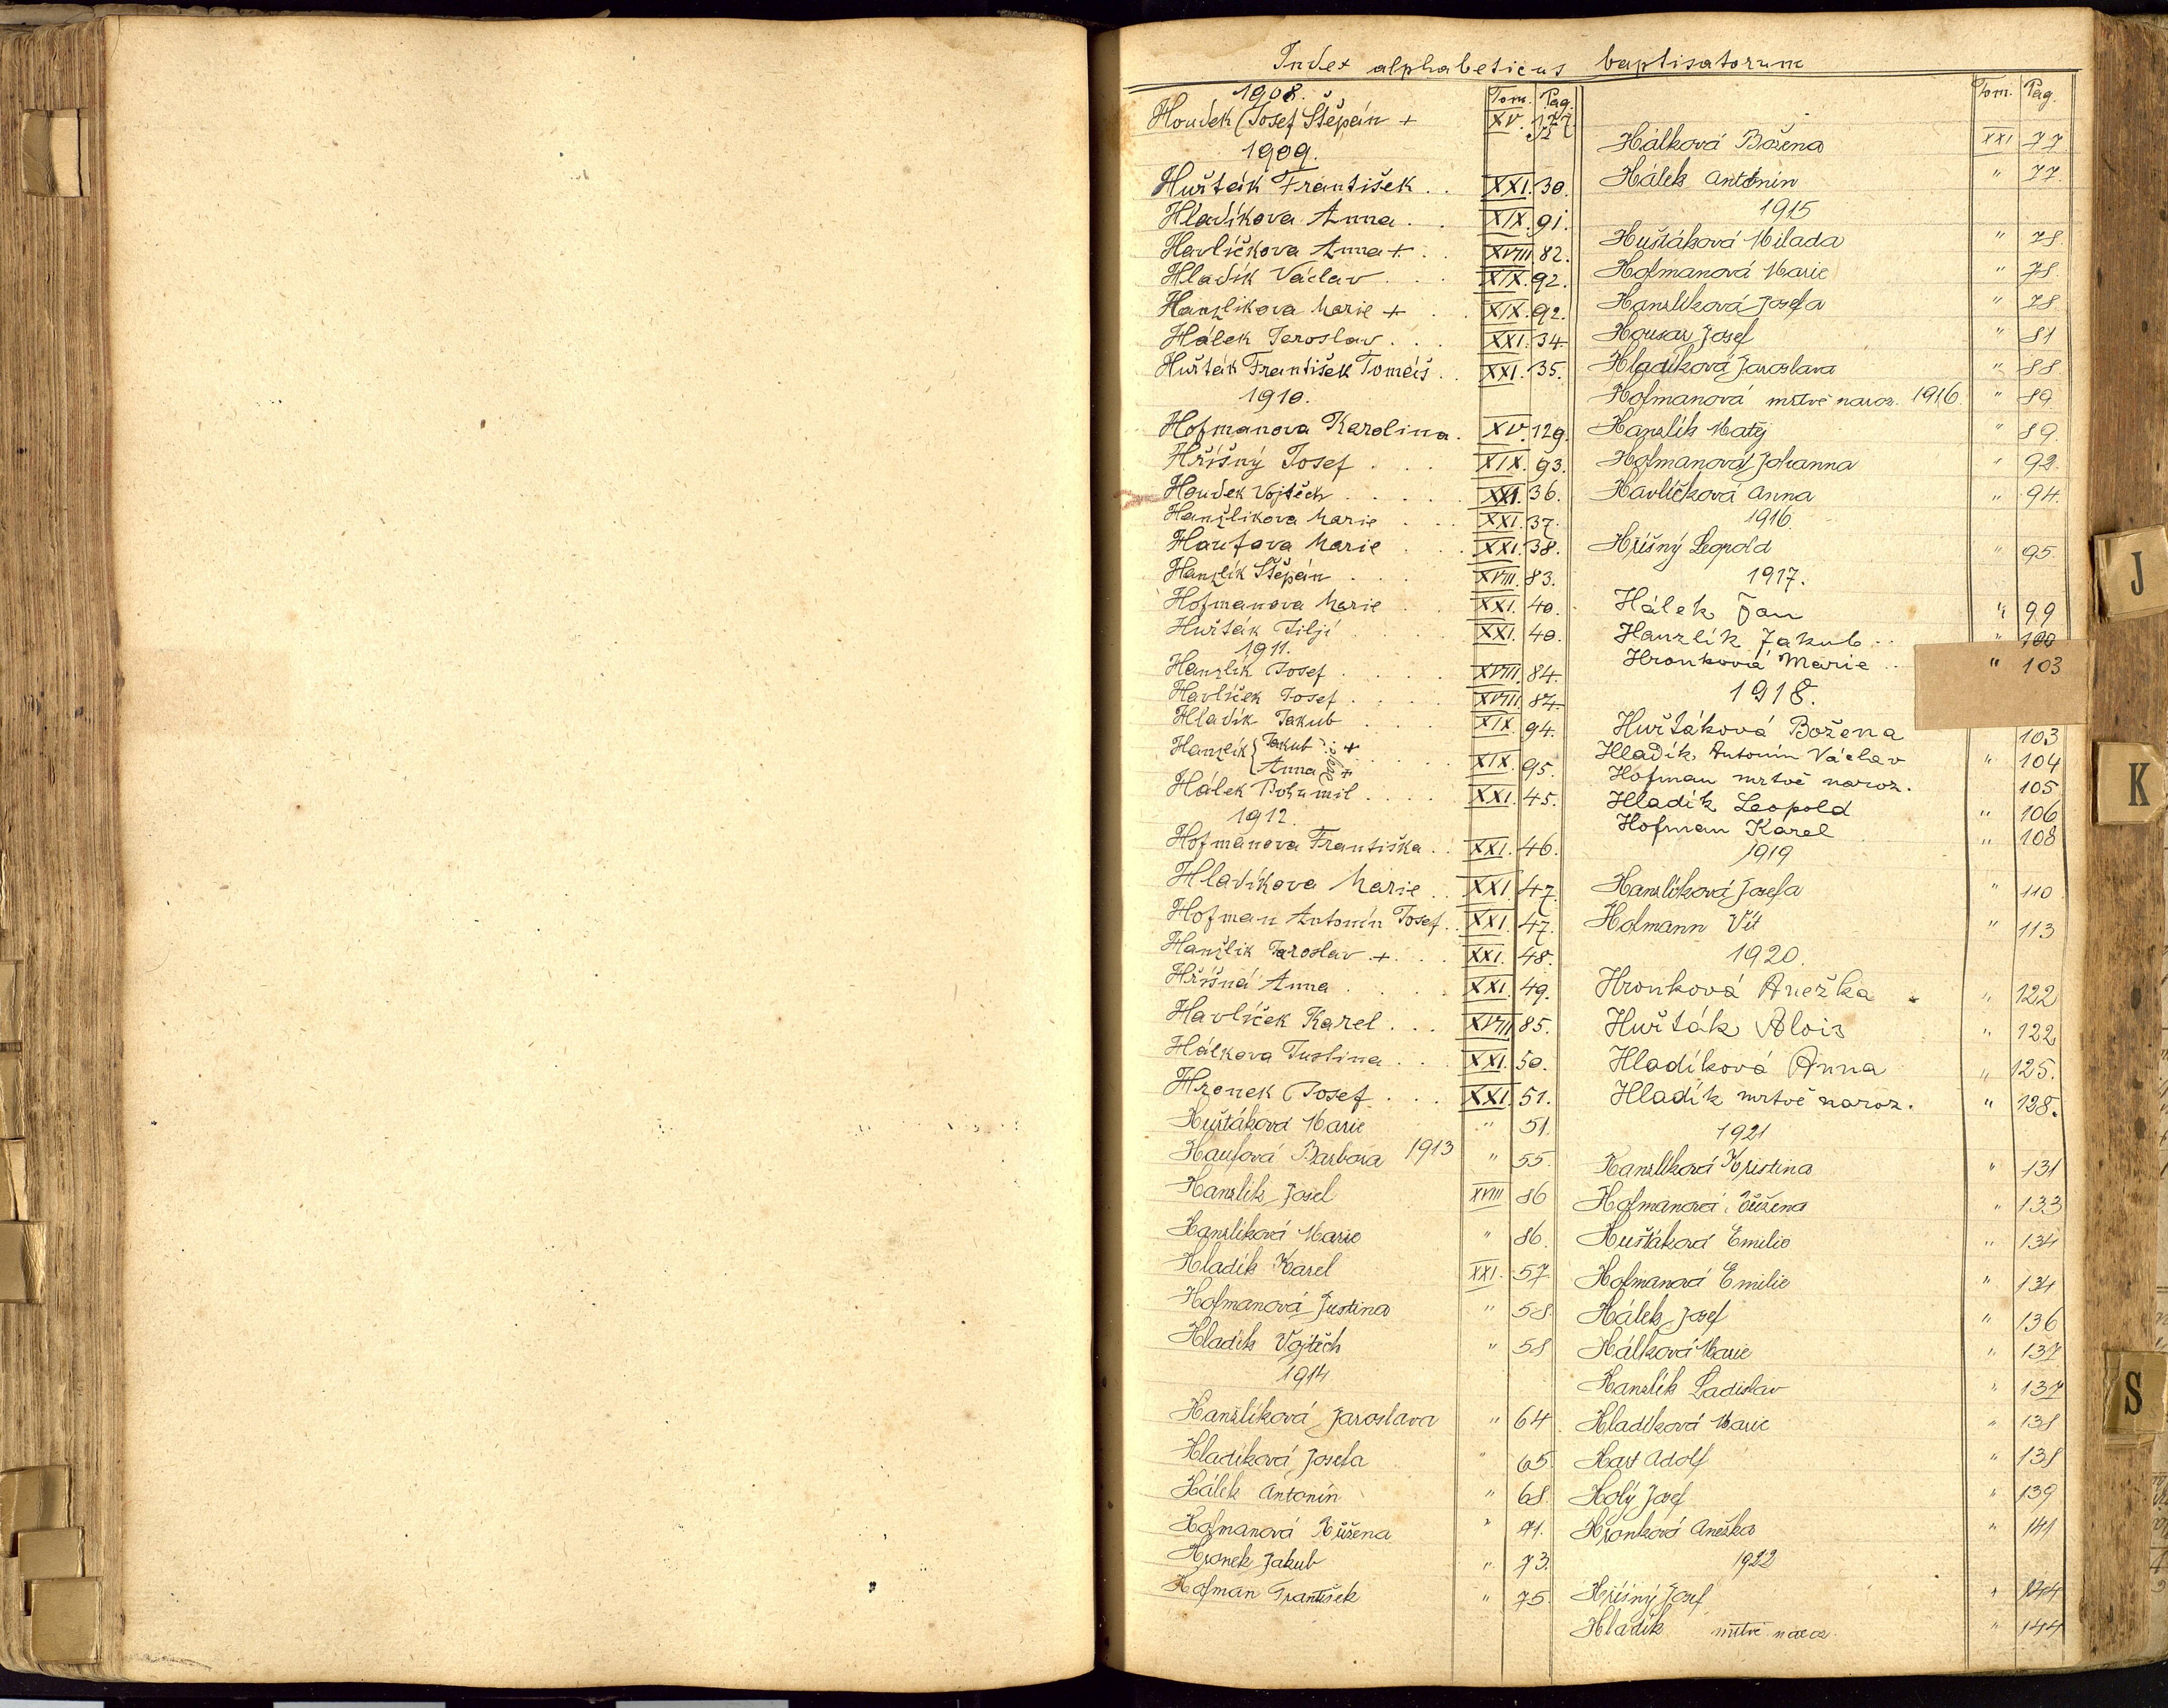 Index alphabeticus baptisatorum
1908. Tom. Pag.
Houdek Josef Štěpán + XV. 127
1909.
Hušták František . . XXI. 30.
Hladíkova Anna . . XIX. 91.
Havlíčkova Anna + . . XVIII. 82.
Hladík Václav . . . XIX. 92.
Hanzlikova Marie + . . XIX. 92.
Hálek Jaroslav . . . XXI. 34
Hušták František Tomáš . . XXI. 35.
1910.
Hofmanova Karolina . XV. 129.
Hříšný Josef . . . XIX. 93.
Houdek Vojtěch . . . . . XXI. 36.
Hanzlikova Marie . . . XXI. 37.
Haufova Marie . . . XXI. 38.
Hanzlík Štěpán . . . XVIII. 83.
Hofmanova Marie . . XXI. 40.
Hušták Jiljí . . . . XXI. 40.
1911.
Hanzlík Josef . . . . XVIII. 84.
Havlíček Josef . . . . XVIII. 84.
Hladík Jakub . . . XIX. 94.
Hanzlík { Jakub +
Anna + . . . . XIX. 95.
Hálek Bohumil . . . . XXI. 45.
1912.
Hofmanova Františka . . XXI. 46.
Hladíkova Marie . . XXI. 47.
Hofman Antonín Josef . . XXI. 47.
Hanzlik Jaroslav + . . XXI. 48.
Hříšná Anna . . . . XXI. 49.
Havlíček Karel . . . XVIII. 85.
Hálkova Justina . . . XXI. 50.
Hronek Josef . . . XXI. 51.
Hušťáková Marie " 51.
Haufová Barbora 1913 " 55.
Hanzlík Josef XVIII 86
Hanzlíková Marie " 86.
Hladík Karel XXI. 57
Hofmanová Justina " 58
Hladík Vojtěch " 58
1914
Hanzlíková Jaroslava " 64
Hladíková Josefa " 65
Hálek Antonín " 68.
Hofmanová Růžena " 71.
Hronek Jakub " 73.
Hofman František " 75.
Tom. Pag.
Hálková Božena XXI 77
Hálek Antonín " 77.
1915
Hušťáková Milada " 78.
Hofmanová Marie " 78.
Hanzlíková Josefa " 78
Housar Josef " 81
Hladíková Jaroslava " 88
Hofmanová mrtvě naroz. 1916. " 89
Hanzlík Matěj " 89.
Hofmanová Johanna " 92.
Havlíčková Anna " 94.
1916.
Hříšný Leopold " 95.
1917.
Hálek Jan " 99
Hanzlík Jakub . . " 100
Hronková Marie . . " 103
1918.
Hušťáková Božena 103
Hladík Antonín Václav " 104
Hofman mrtvě naroz. 105
Hladík Leopold " 106
Hofman Karel " 108
1919
Hanzlíková Josefa " 110
Hofmann Vít " 113
1920.
Hronková Anežka " 122
Hušťák Alois " 122
Hladíková Anna " 125.
Hladík mrtvě naroz. " 128.
1921
Hanzlíková Kristina " 131
Hofmanová Růžena " 133
Hušťáková Emilie " 134
Hofmanová Emilie " 134
Hálek Josef " 136
Hálková Marie " 137
Hanzlík Ladislav " 137
Hladíková Marie " 138
Hart Adolf " 138
Holý Josef " 139
Hronková Anežka " 141
1922
Hříšný Josef " 144
Hladík mrtvě naroz. " 144
J
K
S